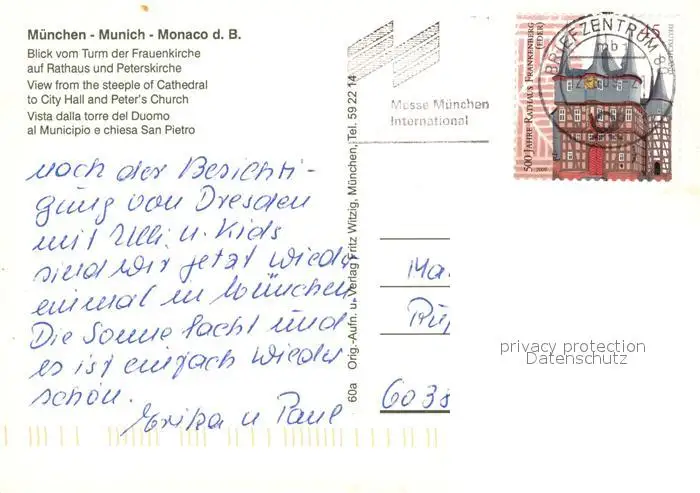 München - Munich - Monaco d. B.
Blick vom Turm der Frauenkirche
auf Rathaus und Peterskirche
View from the steeple of Cathedral
to City Hall and Peter's Church
Vista dalla torre del Duomo
al Municipio e chiesa San Pietro
nach der Besichti-
gung von Dresden
mit Ulli u. Kids
sind wir jetzt wieder
einmal in München
Die Sonne lacht und
es ist einfach wieder
schön.
Erika u Paul
60a Orig.-Aufn. u. Verlag Fritz Witzig, München, Tel. 59 22 14
Messe München
International
500 JAHRE RATHAUS FRANKENBERG
(EDER)
45
BRIEFZENTRUM 8
mb
Ma
60 38
privacy protection
Datenschutz